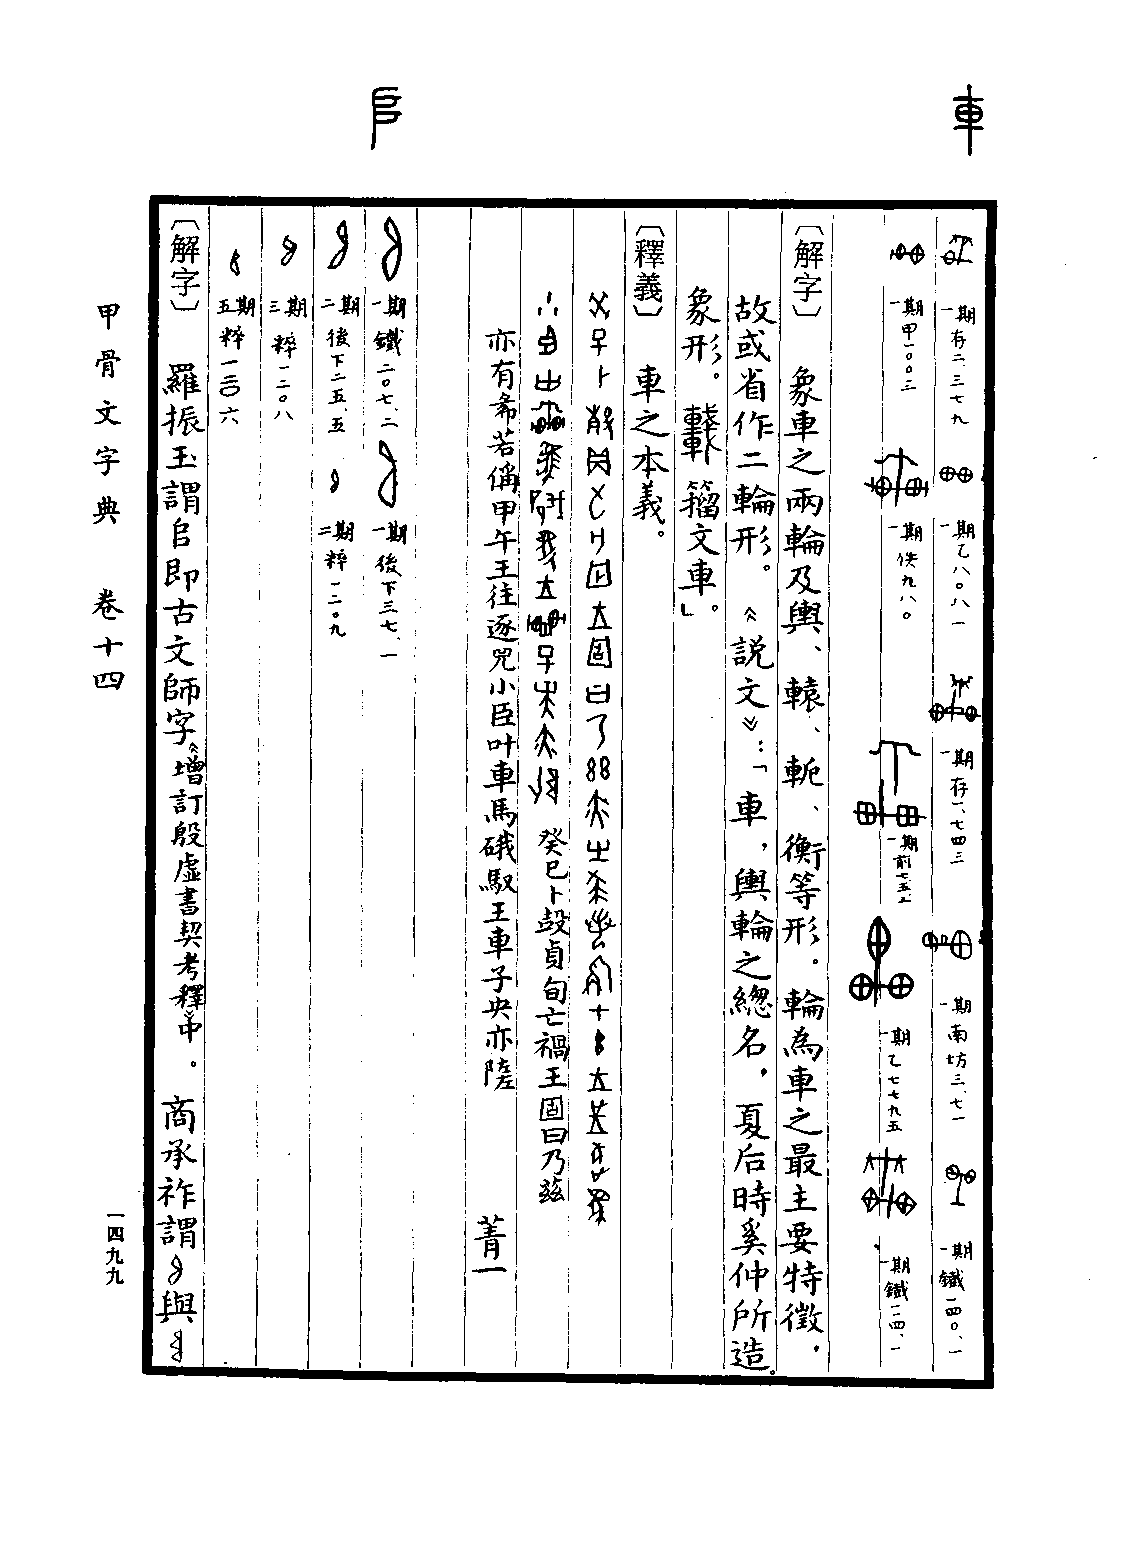 車
𠂤
一期存二、三七九
一期乙八〇八一
一期存一、七四三
一期南坊三、七一
一期鐵一四〇、一
一期甲一〇〇三
一期佚九八〇
一期前七五
一期乙七七九五
一期鐵一一四、一
〔解字〕 象車之兩輪及輿、轅、軛、衡等形。輪為車之最主要特徵，
故或省作二輪形。《說文》：「車，輿輪之總名，夏后時奚仲所造。
象形。𨏖籀文車」。
〔釋義〕 車之本義。
癸巳卜㱿貞旬亡禍王固曰乃茲
亦有希若偁甲午王往逐兕小臣叶車馬硪馭王車子央亦墜 菁一
一期鐵二〇七、二
一期後下三七、一
二期後下二五、五
二期粹一二〇九
三期粹一二〇八
五期粹一三〇六
〔解字〕 羅振玉謂𠂤即古文師字《增訂殷虛書契考釋》中。 商承祚謂 與
甲骨文字典 卷十四
一四九九